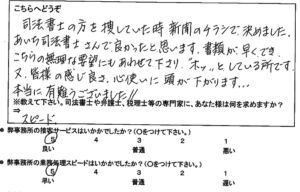 こちらへどうぞ
司法書士の方を捜していた時 新聞のチラシで決めました。
あいち司法書士さんで良かったと思います。書類が早くでき、
こちらの無理な要望にもあわせて下さり、"ホッ"としている所です。
又、皆様の感じ良さ、心使いに頭が下がります…
本当に有難うございました!!
※教えて下さい。司法書士や弁護士、税理士等の専門家に、あなた様は何を求めますか?
⇒
スピード
● 弊事務所の接客サービスはいかがでしたか?(○をつけて下さい。)
5 4 3 2 1
良い 普通 悪い
● 弊事務所の業務処理スピードはいかがでしたか?(○をつけて下さい。)
5 4 3 2 1
早い 普通 遅い